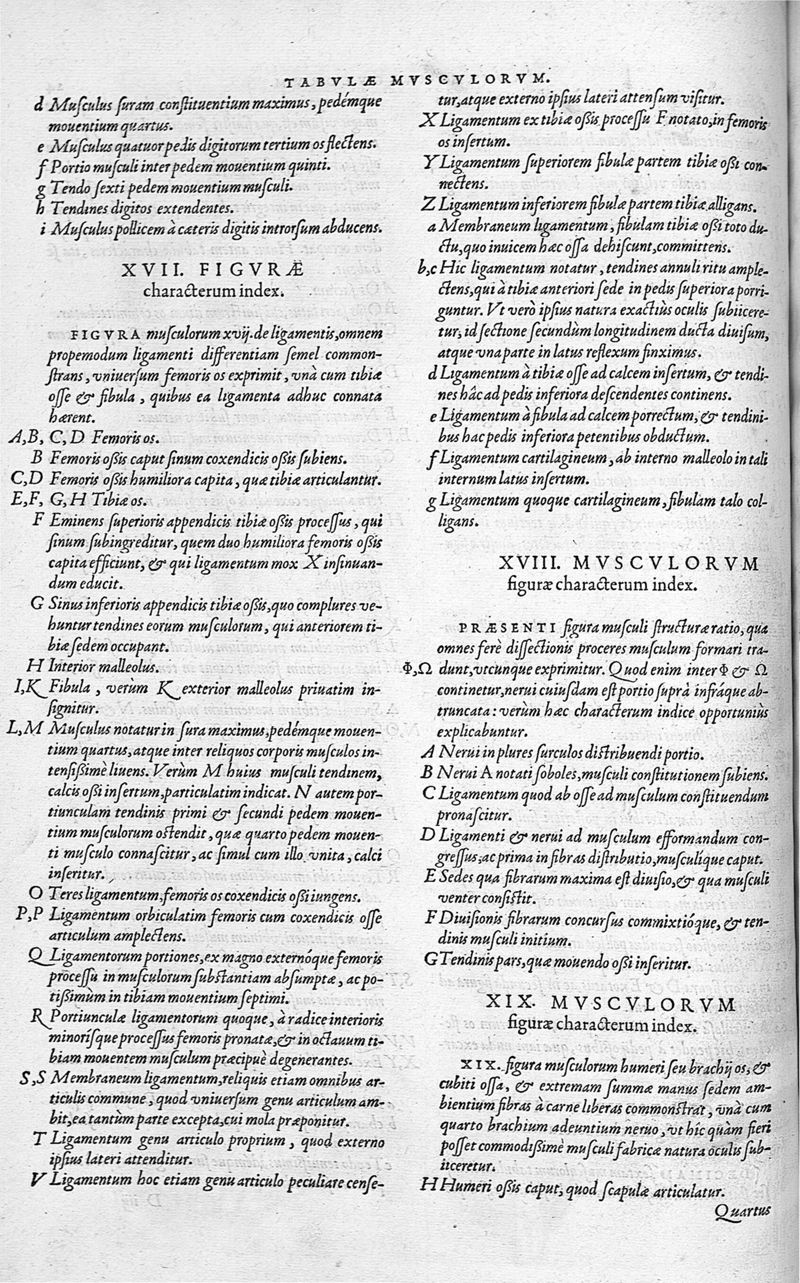 TABVLÆ MVSCVLORVM.
d Muſculus ſuram conſtituentium maximus, pedémque
mouentium quartus.
e Muſculus quatuor pedis digitorum tertium os flectens.
f Portio muſculi inter pedem mouentium quinti.
g Tendo ſexti pedem mouentium muſculi.
h Tendines digitos extendentes.
i Muſculus pollicem à cæteris digitis introrſum abducens.
XVII. FIGVRÆ
characterum index.
FIGVRA muſculorum xvij. de ligamentis, omnem
propemodum ligamenti differentiam ſemel common-
ſtrans, vniuerſum femoris os exprimit, vnà cum tibiæ
oſſe & fibula, quibus ea ligamenta adhuc connata
hærent.
A, B, C, D Femoris os.
B Femoris oßis caput ſinum coxendicis oßis ſubiens.
C, D Femoris oßis humiliora capita, quæ tibiæ articulantur.
E, F, G, H Tibiæ os.
F Eminens ſuperioris appendicis tibiæ oßis proceſſus, qui
ſinum ſubingreditur, quem duo humiliora femoris oßis
capita efficiunt, & qui ligamentum mox X inſinuan-
dum educit.
G Sinus inferioris appendicis tibiæ oßis, quo complures ve-
huntur tendines eorum muſculorum, qui anteriorem ti-
biæ ſedem occupant.
H Interior malleolus.
I, K Fibula, verùm K exterior malleolus priuatim in-
ſignitur.
L, M Muſculus notatur in ſura maximus, pedémque mouen-
tium quartus, atque inter reliquos corporis muſculos in-
tenſißimè liuens. Verùm M huius muſculi tendinem,
calcis oßi inſertum, particulatim indicat. N autem por-
tiunculam tendinis primi & ſecundi pedem mouen-
tium muſculorum oſtendit, quæ quarto pedem mouen-
ti muſculo connaſcitur, ac ſimul cum illo vnita, calci
inſeritur.
O Teres ligamentum, femoris os coxendicis oßi iungens.
P, P Ligamentum orbiculatim femoris cum coxendicis oſſe
articulum amplectens.
Q Ligamentorum portiones, ex magno externóque femoris
proceſſu in muſculorum ſubſtantiam abſumptæ, ac po-
tißimùm in tibiam mouentium ſeptimi.
R Portiunculæ ligamentorum quoque, à radice interioris
minoríſque proceſſus femoris pronatæ, & in octauum ti-
biam mouentem muſculum præcipuè degenerantes.
S, S Membraneum ligamentum, reliquis etiam omnibus ar-
ticulis commune, quod vniuerſum genu articulum am-
bit, ea tantùm parte excepta, cui mola præponitur.
T Ligamentum genu articulo proprium, quod externo
ipſius lateri attenditur.
V Ligamentum hoc etiam genu articulo peculiare cenſe-
tur, atque externo ipſius lateri attenſum viſitur.
X Ligamentum ex tibiæ oßis proceſſu F notato, in femoris
os inſertum.
Y Ligamentum ſuperiorem fibulæ partem tibiæ oßi con-
nectens.
Z Ligamentum inferiorem fibulæ partem tibiæ alligans.
a Membraneum ligamentum, fibulam tibiæ oßi toto du-
ctu, quo inuicem hæc oſſa dehiſcunt, committens.
b, c Hic ligamentum notatur, tendines annuli ritu ample-
ctens, qui à tibiæ anteriori ſede in pedis ſuperiora porri-
guntur. Vt verò ipſius natura exactiùs oculis ſubiicere-
tur, id ſectione ſecundùm longitudinem ducta diuiſum,
atque vna parte in latus reflexum finximus.
d Ligamentum à tibiæ oſſe ad calcem inſertum, & tendi-
nes hâc ad pedis inferiora deſcendentes continens.
e Ligamentum à fibula ad calcem porrectum, & tendini-
bus hac pedis inferiora petentibus obductum.
f Ligamentum cartilagineum, ab interno malleolo in tali
internum latus inſertum.
g Ligamentum quoque cartilagineum, fibulam talo col-
ligans.
XVIII. MVSCVLORVM
figuræ characterum index.
PRÆSENTI figura muſculi ſtructuræ ratio, qua
omnes ferè diſſectionis proceres muſculum formari tra-
Φ, Ω dunt, vtcunque exprimitur. Quod enim inter Φ & Ω
continetur, nerui cuiuſdam eſt portio ſuprà infráque ab-
truncata: verùm hæc characterum indice opportuniùs
explicabuntur.
A Nerui in plures ſurculos diſtribuendi portio.
B Nerui A notati ſoboles, muſculi conſtitutionem ſubiens.
C Ligamentum quod ab oſſe ad muſculum conſtituendum
pronaſcitur.
D Ligamenti & nerui ad muſculum efformandum con-
greſſus, ac prima in fibras diſtributio, muſculíque caput.
E Sedes qua fibrarum maxima eſt diuiſio, & qua muſculi
venter conſiſtit.
F Diuiſionis fibrarum concurſus commixtióque, & ten-
dinis muſculi initium.
G Tendinis pars, quæ mouendo oßi inſeritur.
XIX. MVSCVLORVM
figuræ characterum index.
XIX. figura muſculorum humeri ſeu brachij os, &
cubiti oſſa, & extremam ſummæ manus ſedem am-
bientium fibras à carne liberas commonſtrat, vnà cum
quarto brachium adeuntium neruo, vt hîc quàm fieri
poſſet commodißimè muſculi fabricæ natura oculis ſub-
iiceretur.
H Humeri oßis caput, quod ſcapulæ articulatur.
Quartus